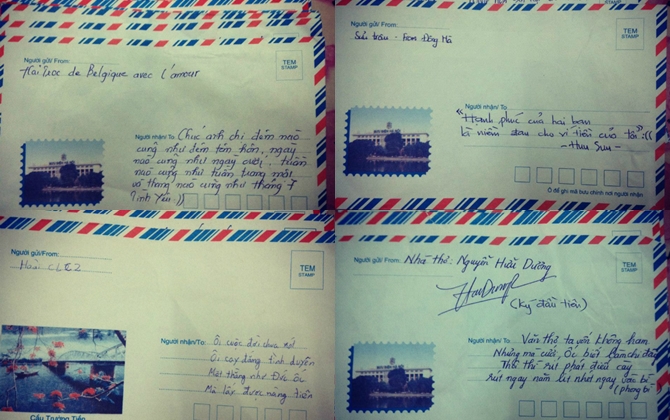 Người gửi/ From:
TEM
STAMP
Hải Troc de Belgique avec l'amour
Người nhận/ To:
Chúc anh chị đêm nào
cũng như đêm tân hôn, ngày
nào cũng như ngày cưới, tuần
nào cũng như tuần trăng mật
và tháng nào cũng như tháng 7
Tình Yêu :))
Người gửi/ From:
TEM
STAMP
Sửu trâu - From Đông Mã
Người nhận/ To:
"Hạnh phúc của hai bạn
là niềm đau cho ví tiền của tôi" :((
- Huu Suu -
Ô để ghi mã bưu chính nơi người nhận
Người gửi/From:
TEM
STAMP
Hoài CLC2
Người nhận/To:
Ôi cuộc đời chua ngọt
Ôi cay đắng tình duyên
Một thằng như Đức Ốc
Mà lấy được nàng tiên
Cầu Trường Tiền
Người gửi/ From:
TEM
STAMP
Nhà thơ: Nguyễn Hoài Dương
(Ký đầu tiên)
Người nhận/ To:
Văn thơ ta vốn không ham
Nhưng mà cưới Ốc biết làm chi đây
Thôi thì rút phát điếu cày
Rút ngay năm lít nhét ngay vào bì
(phong bì